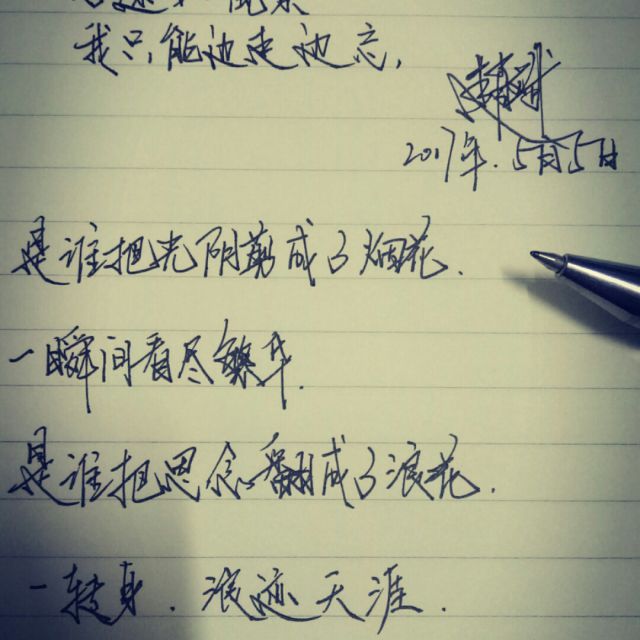 我只能边走边忘,
2017年.5月5日
是谁把光阴剪成了烟花.
一瞬间看尽繁华.
是谁把思念翻成了浪花.
一转身.浪迹天涯.